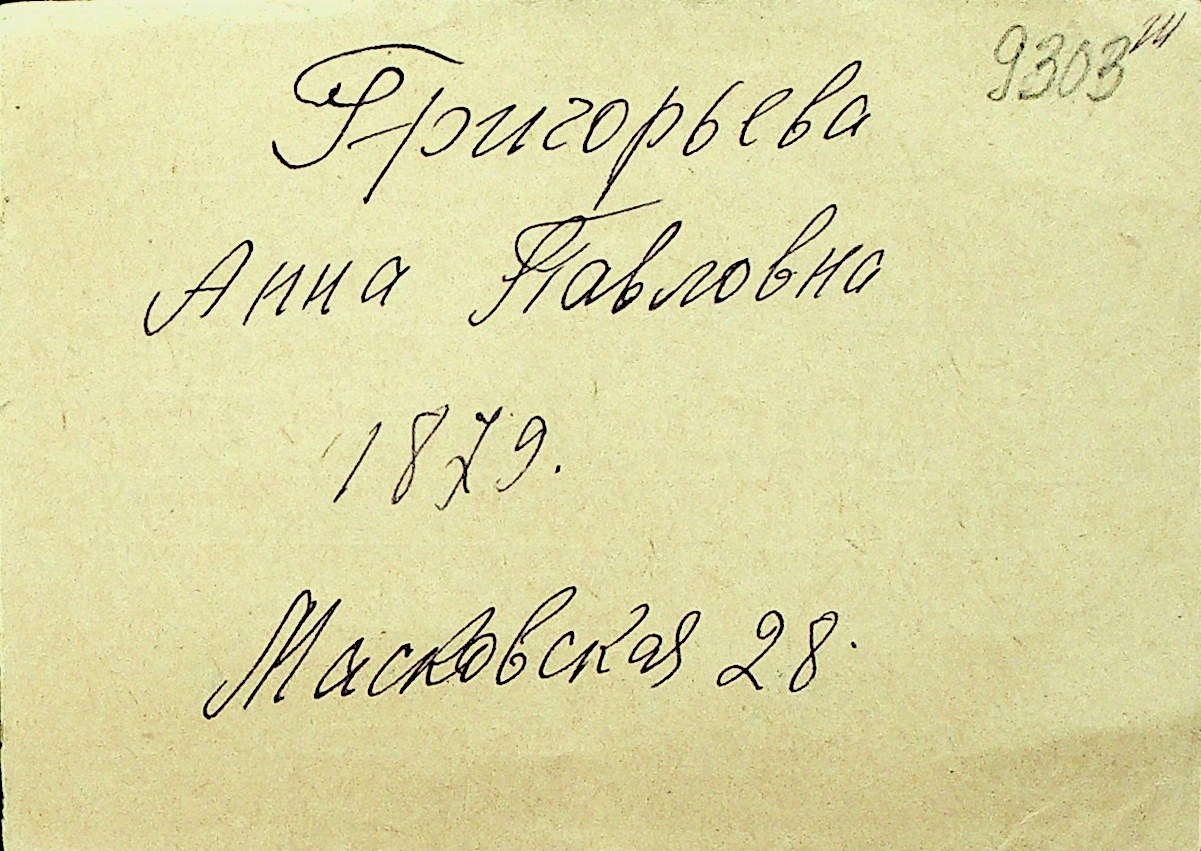 9303
Григорьева
Анна Павловна
1879.
Масковская 28.